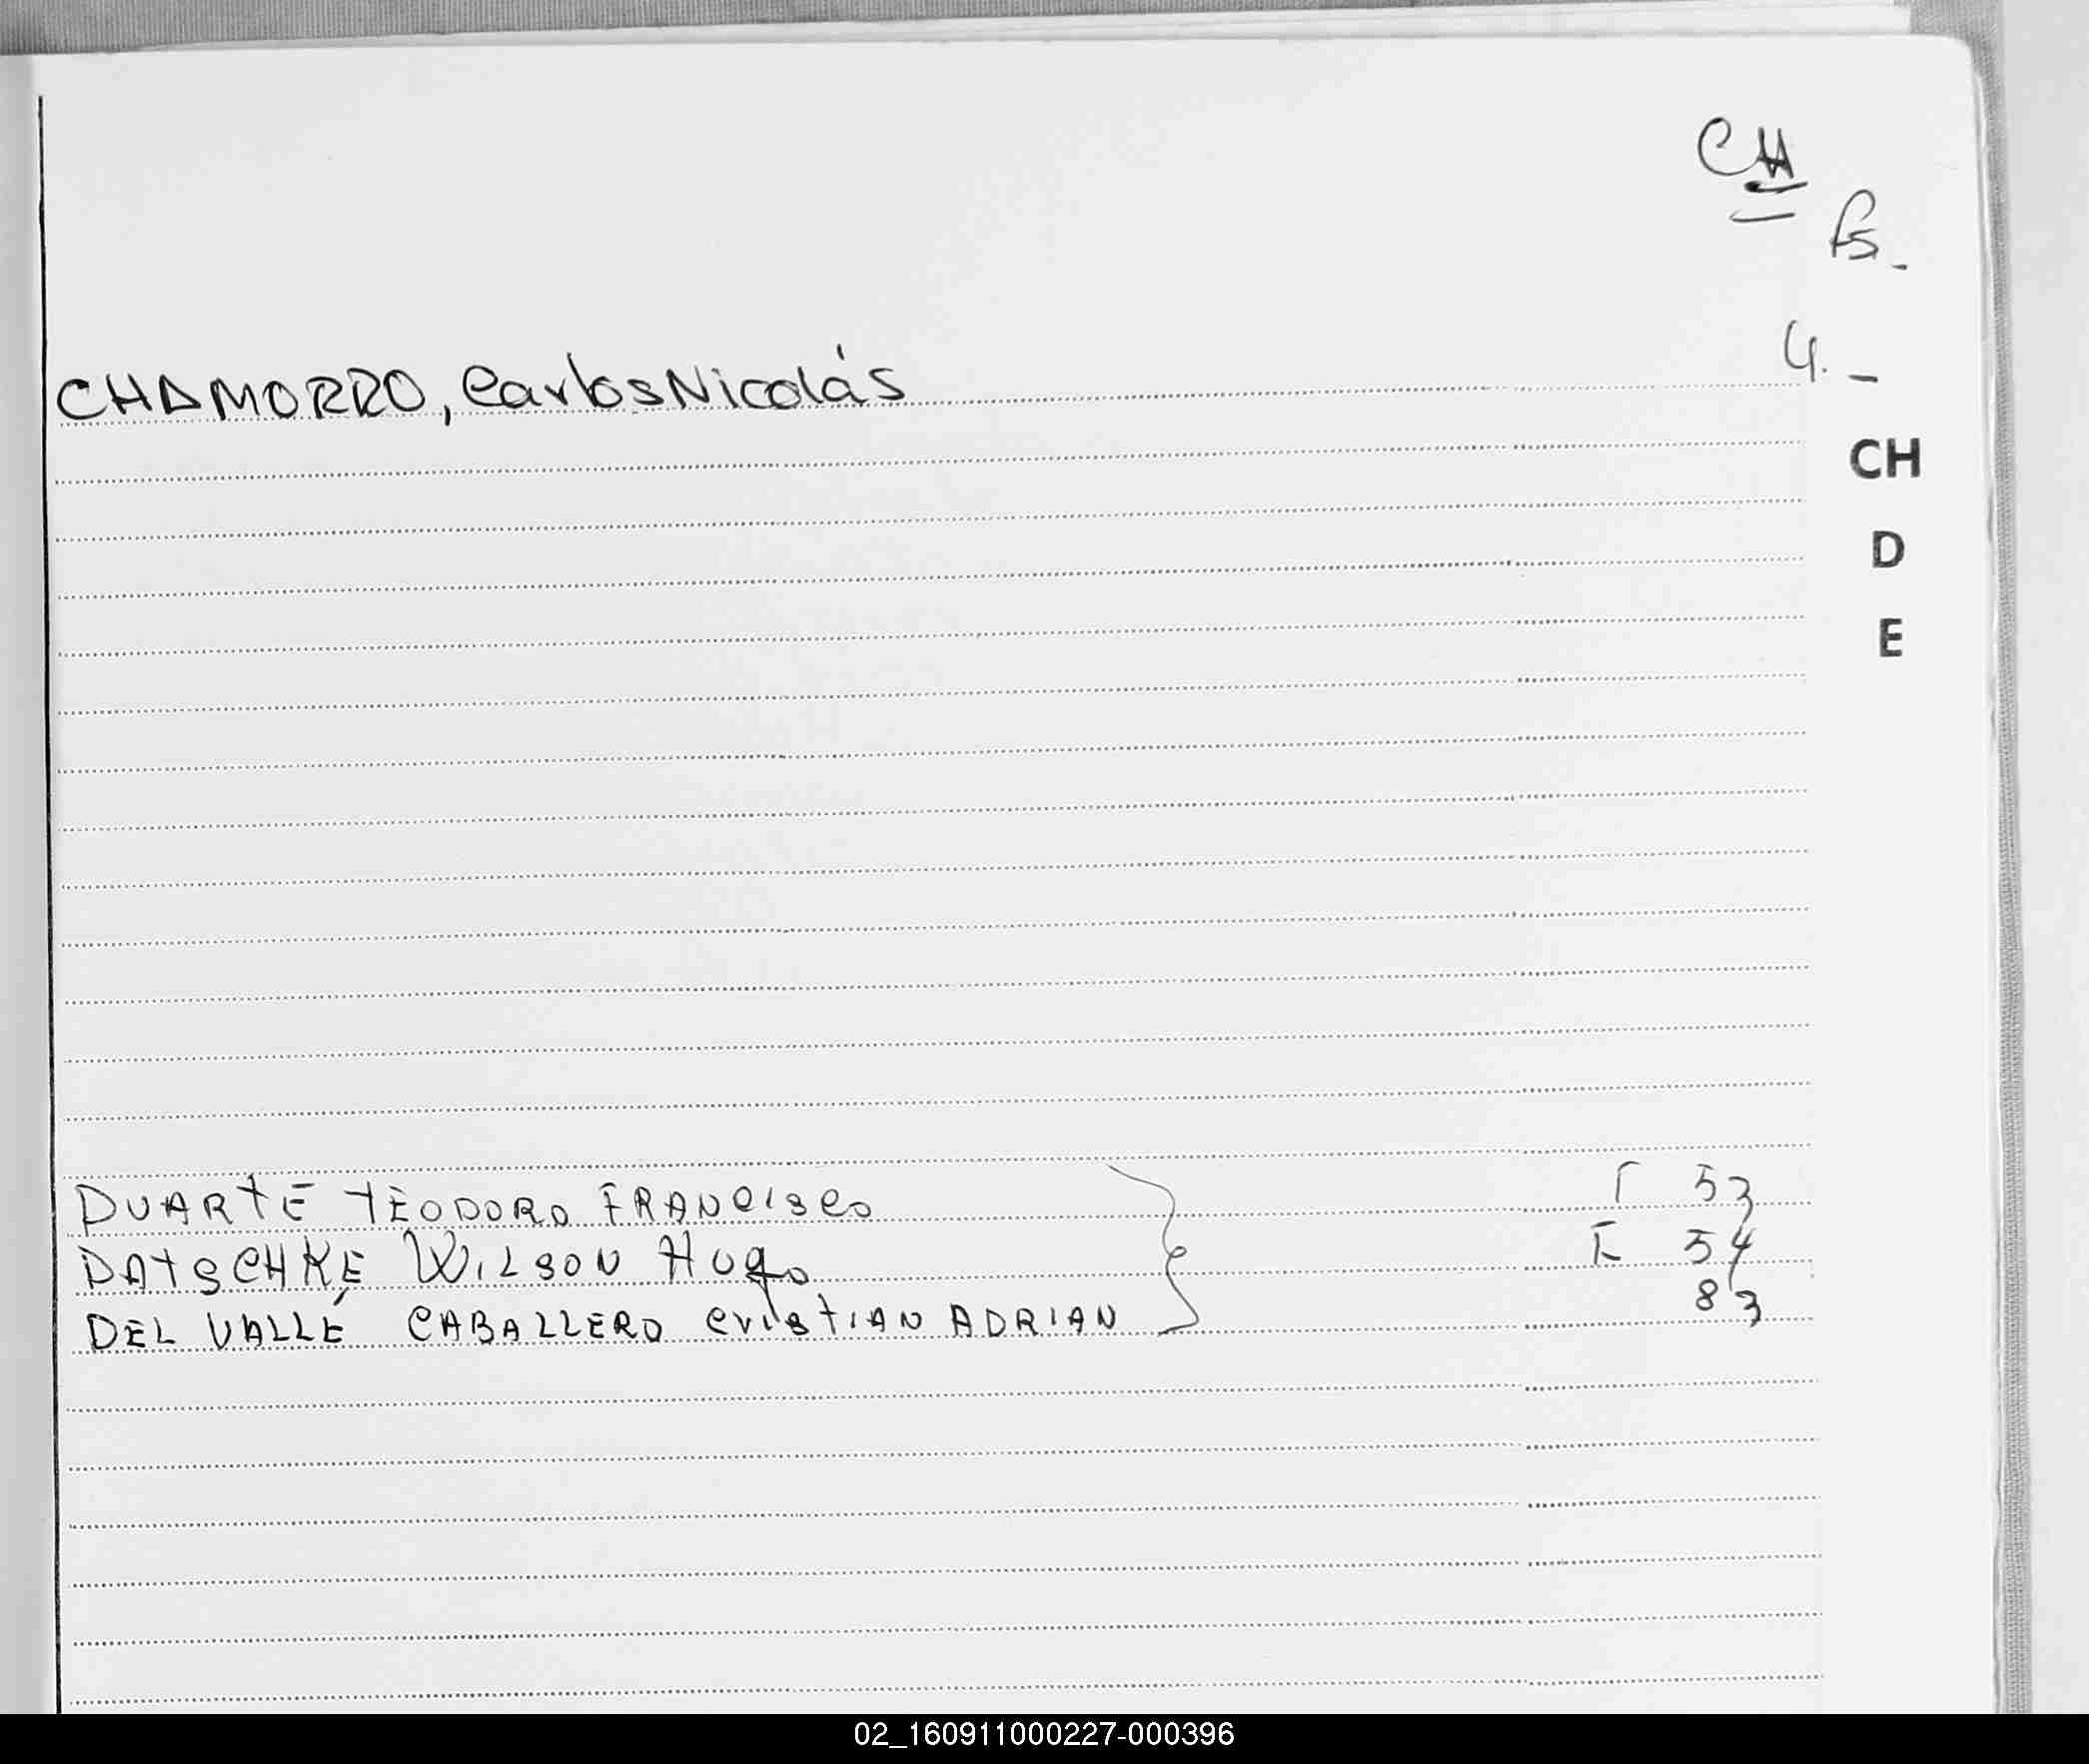 CH
Fs.
CHAMORRO, Carlos Nicolás 4. -
CH
D
E
DUARTE TEODORO FRANCISCO F 53
DATSCHKE WILSON HUgo F 54
DEL VALLE CABALLERO CristIAN ADRIAN 83
02_160911000227-000396